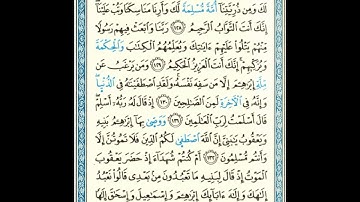 لَكَ وَمِن ذُرِّيَّتِنَآ أُمَّةً مُّسْلِمَةً لَّكَ وَأَرِنَا مَنَاسِكَنَا وَتُبْ عَلَيْنَآ
إِنَّكَ أَنتَ التَّوَّابُ الرَّحِيمُ ١٢٨ رَبَّنَا وَابْعَثْ فِيهِمْ رَسُولًا
مِّنْهُمْ يَتْلُوا۟ عَلَيْهِمْ ءَايَٰتِكَ وَيُعَلِّمُهُمُ الْكِتَٰبَ وَالْحِكْمَةَ
وَيُزَكِّيهِمْ إِنَّكَ أَنتَ الْعَزِيزُ الْحَكِيمُ ١٢٩ وَمَن يَرْغَبُ عَن
مِّلَّةِ إِبْرَٰهِـۧمَ إِلَّا مَن سَفِهَ نَفْسَهُۥ وَلَقَدِ اصْطَفَيْنَٰهُ فِي الدُّنْيَا
وَإِنَّهُۥ فِي الْءَاخِرَةِ لَمِنَ الصَّٰلِحِينَ ١٣٠ إِذْ قَالَ لَهُۥ رَبُّهُۥٓ أَسْلِمْ
قَالَ أَسْلَمْتُ لِرَبِّ الْعَٰلَمِينَ ١٣١ وَوَصَّىٰ بِهَآ إِبْرَٰهِـۧمُ بَنِيهِ
وَيَعْقُوبُ يَٰبَنِيَّ إِنَّ اللَّهَ اصْطَفَىٰ لَكُمُ الدِّينَ فَلَا تَمُوتُنَّ إِلَّا
وَأَنتُم مُّسْلِمُونَ ١٣٢ أَمْ كُنتُمْ شُهَدَآءَ إِذْ حَضَرَ يَعْقُوبَ
الْمَوْتُ إِذْ قَالَ لِبَنِيهِ مَا تَعْبُدُونَ مِنۢ بَعْدِي قَالُوا۟ نَعْبُدُ
إِلَٰهَكَ وَإِلَٰهَ ءَابَآئِكَ إِبْرَٰهِـۧمَ وَإِسْمَٰعِيلَ وَإِسْحَٰقَ إِلَٰهًا